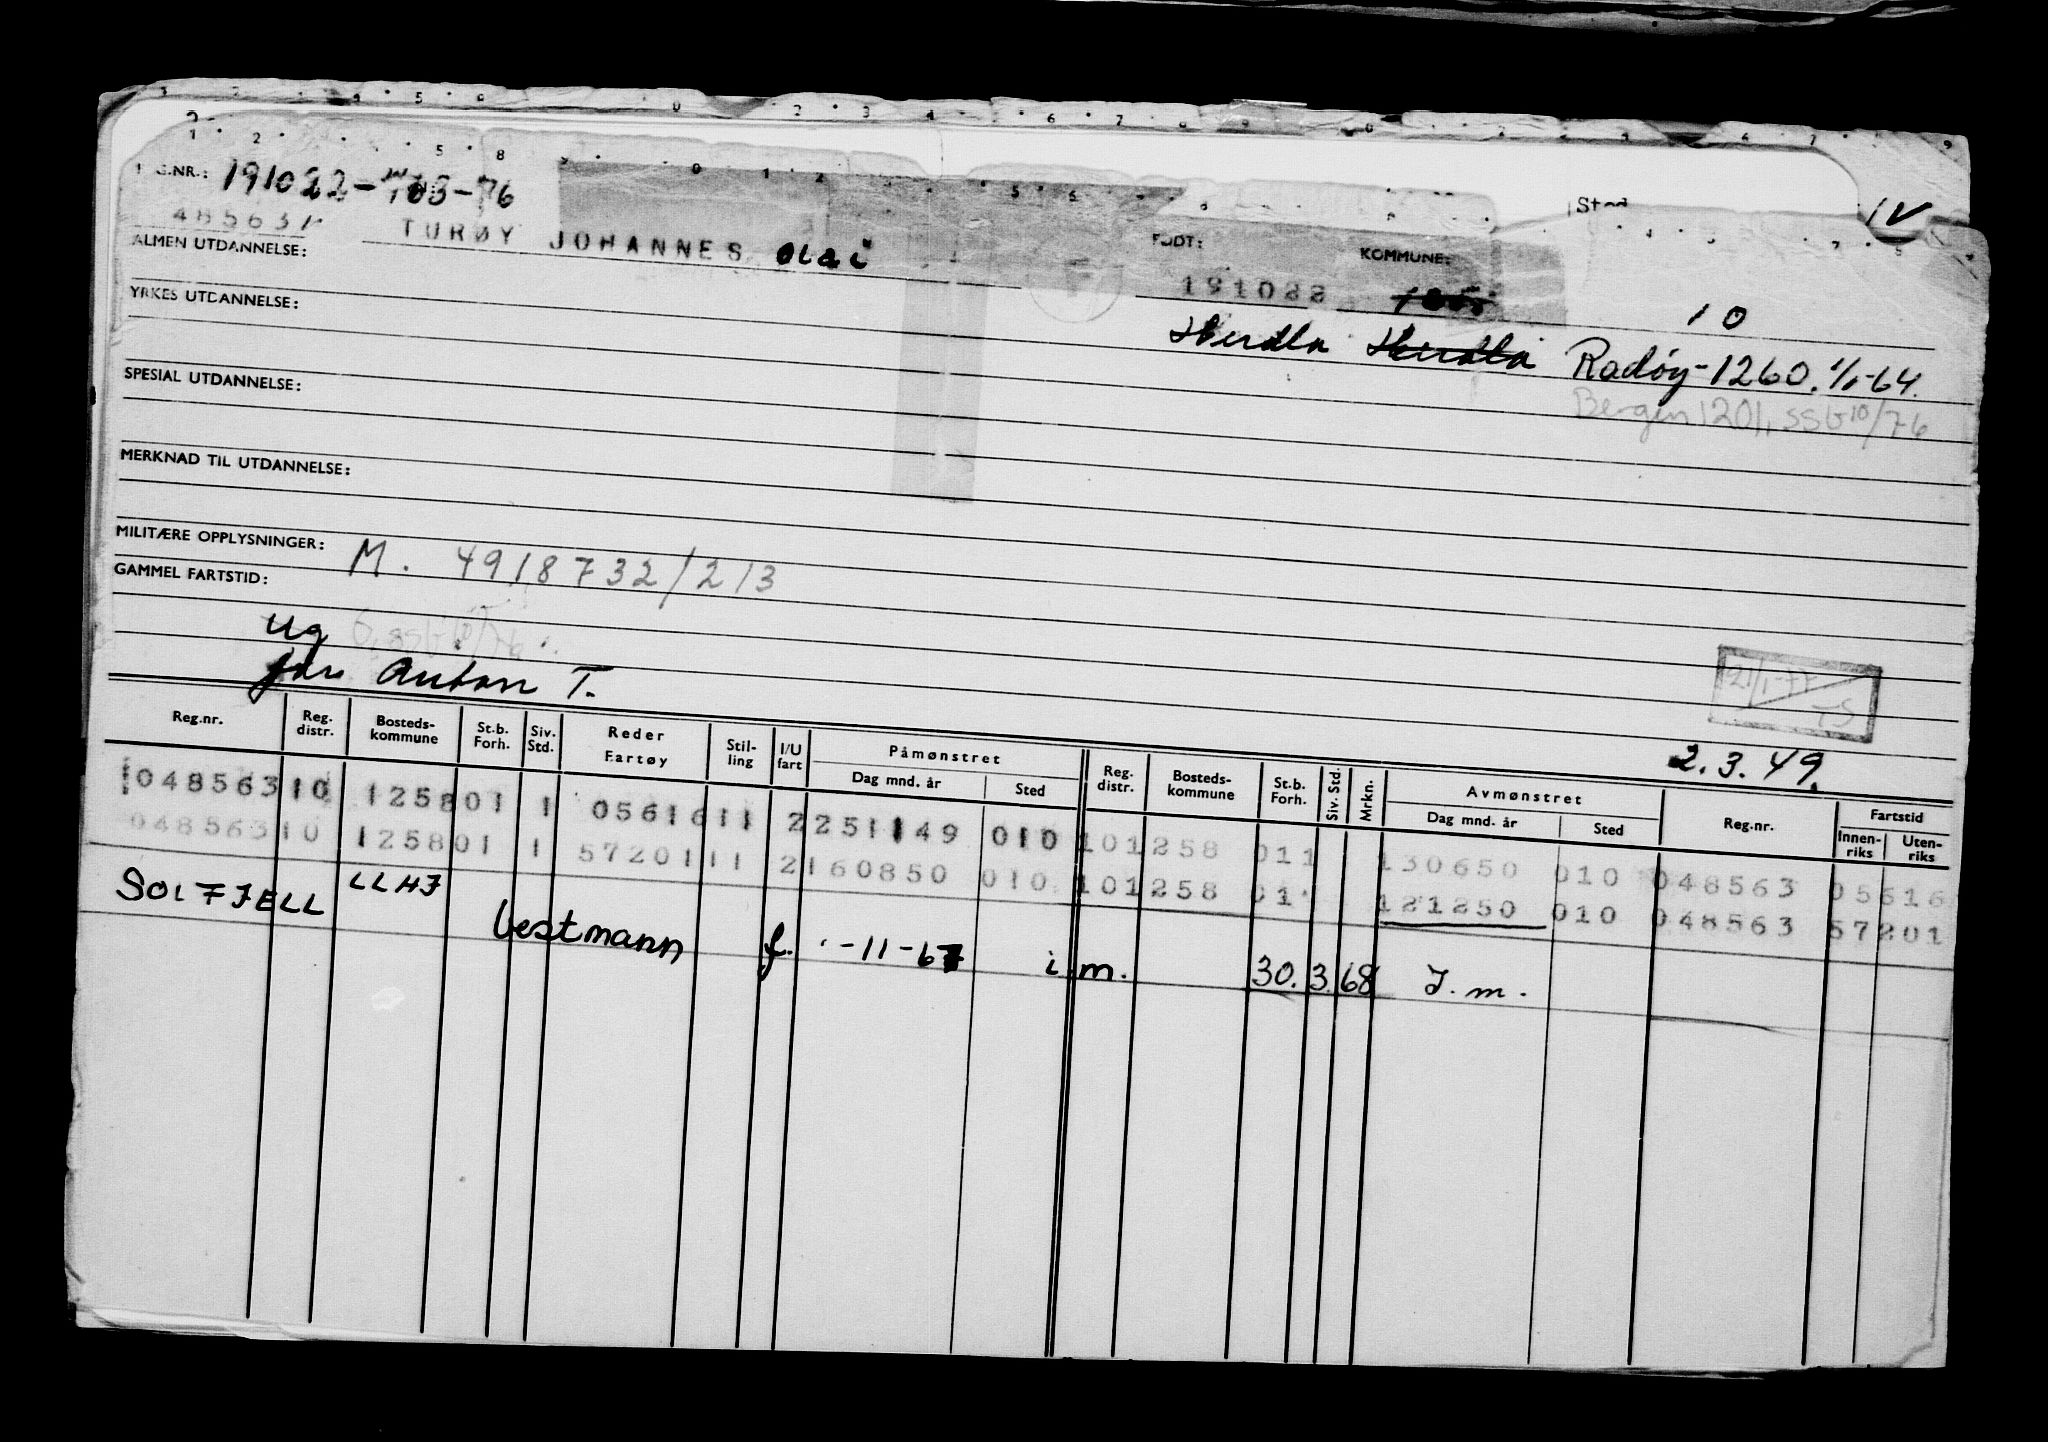 191022-103-76
485631
TURØY JOHANNES Olai
FØDT:
KOMMUNE:
191022
10
ALMEN UTDANNELSE:
YRKES UTDANNELSE:
Herdla Herdla Radøy-1260. 1/1-64.
Bergen 1201, SSb 10/76
SPESIAL UTDANNELSE:
MERKNAD TIL UTDANNELSE:
MILITÆRE OPPLYSNINGER: M. 4918732/213
GAMMEL FARTSTID:
ug
far Anton T.
2.3.49.
Reg.nr. Reg. distr. Bosteds-kommune St.b. Forh. Siv. Std. Reder Fartøy Stil-ling I/U fart Påmønstret Dag mnd. år Sted Reg. distr. Bosteds-kommune St.b. Forh. Siv. Std. Mrkn. Avmønstret Dag mnd. år Sted Reg.nr. Fartstid Innen-riks Uten-riks
048563 10 1258 01 1 05616 11 2 251149 010 10 1258 011 130650 010 048563 05616
048563 10 1258 01 1 57201 11 2 160850 010 10 1258 01 121250 010 048563 57201
SOLFJELL LLHJ Vestmann f. -11-67 i m. 30.3.68 I.m.